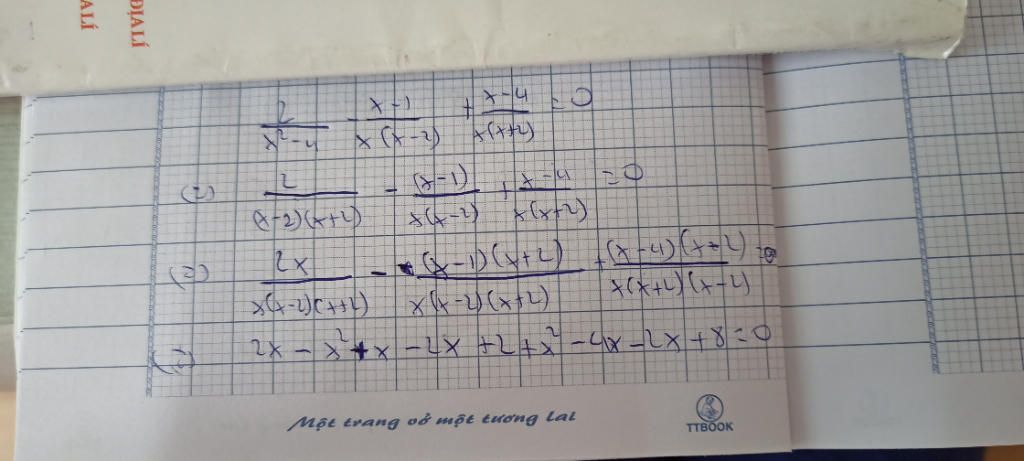 ĐỊA LÍ
ĐỊA LÍ
2/(x²-4) - (x-1)/(x(x-2)) + (x-4)/(x(x+2)) = 0
(=) 2/((x-2)(x+2)) - (x-1)/(x(x-2)) + (x-4)/(x(x+2)) = 0
(=) 2x/(x(x-2)(x+2)) - (x-1)(x+2)/(x(x-2)(x+2)) + (x-4)(x-2)/(x(x+2)(x-2)) = 0
(=) 2x - x² + x - 2x + 2 + x² - 4x - 2x + 8 = 0
Một trang vở một tương lai
TTBOOK